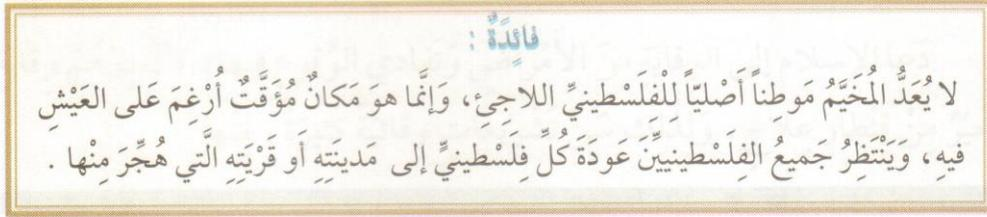 فائِدَةٌ :
لا يُعَدُّ المُخَيَّمُ مَوطِناً أَصْلِيّاً لِلْفَلَسْطينيِّ اللاجِئ، وَإِنَّما هوَ مَكانٌ مُؤَقَّتٌ أُرْغِمَ عَلى العَيْشِ
فيهِ، وَيَنْتَظِرُ جَميعُ الفِلَسْطينِيِّينَ عَودَةَ كُلِّ فِلَسْطينيٍّ إلى مَدينَتِهِ أَو قَرْيَتِهِ الَّتي هُجِّرَ مِنْها .